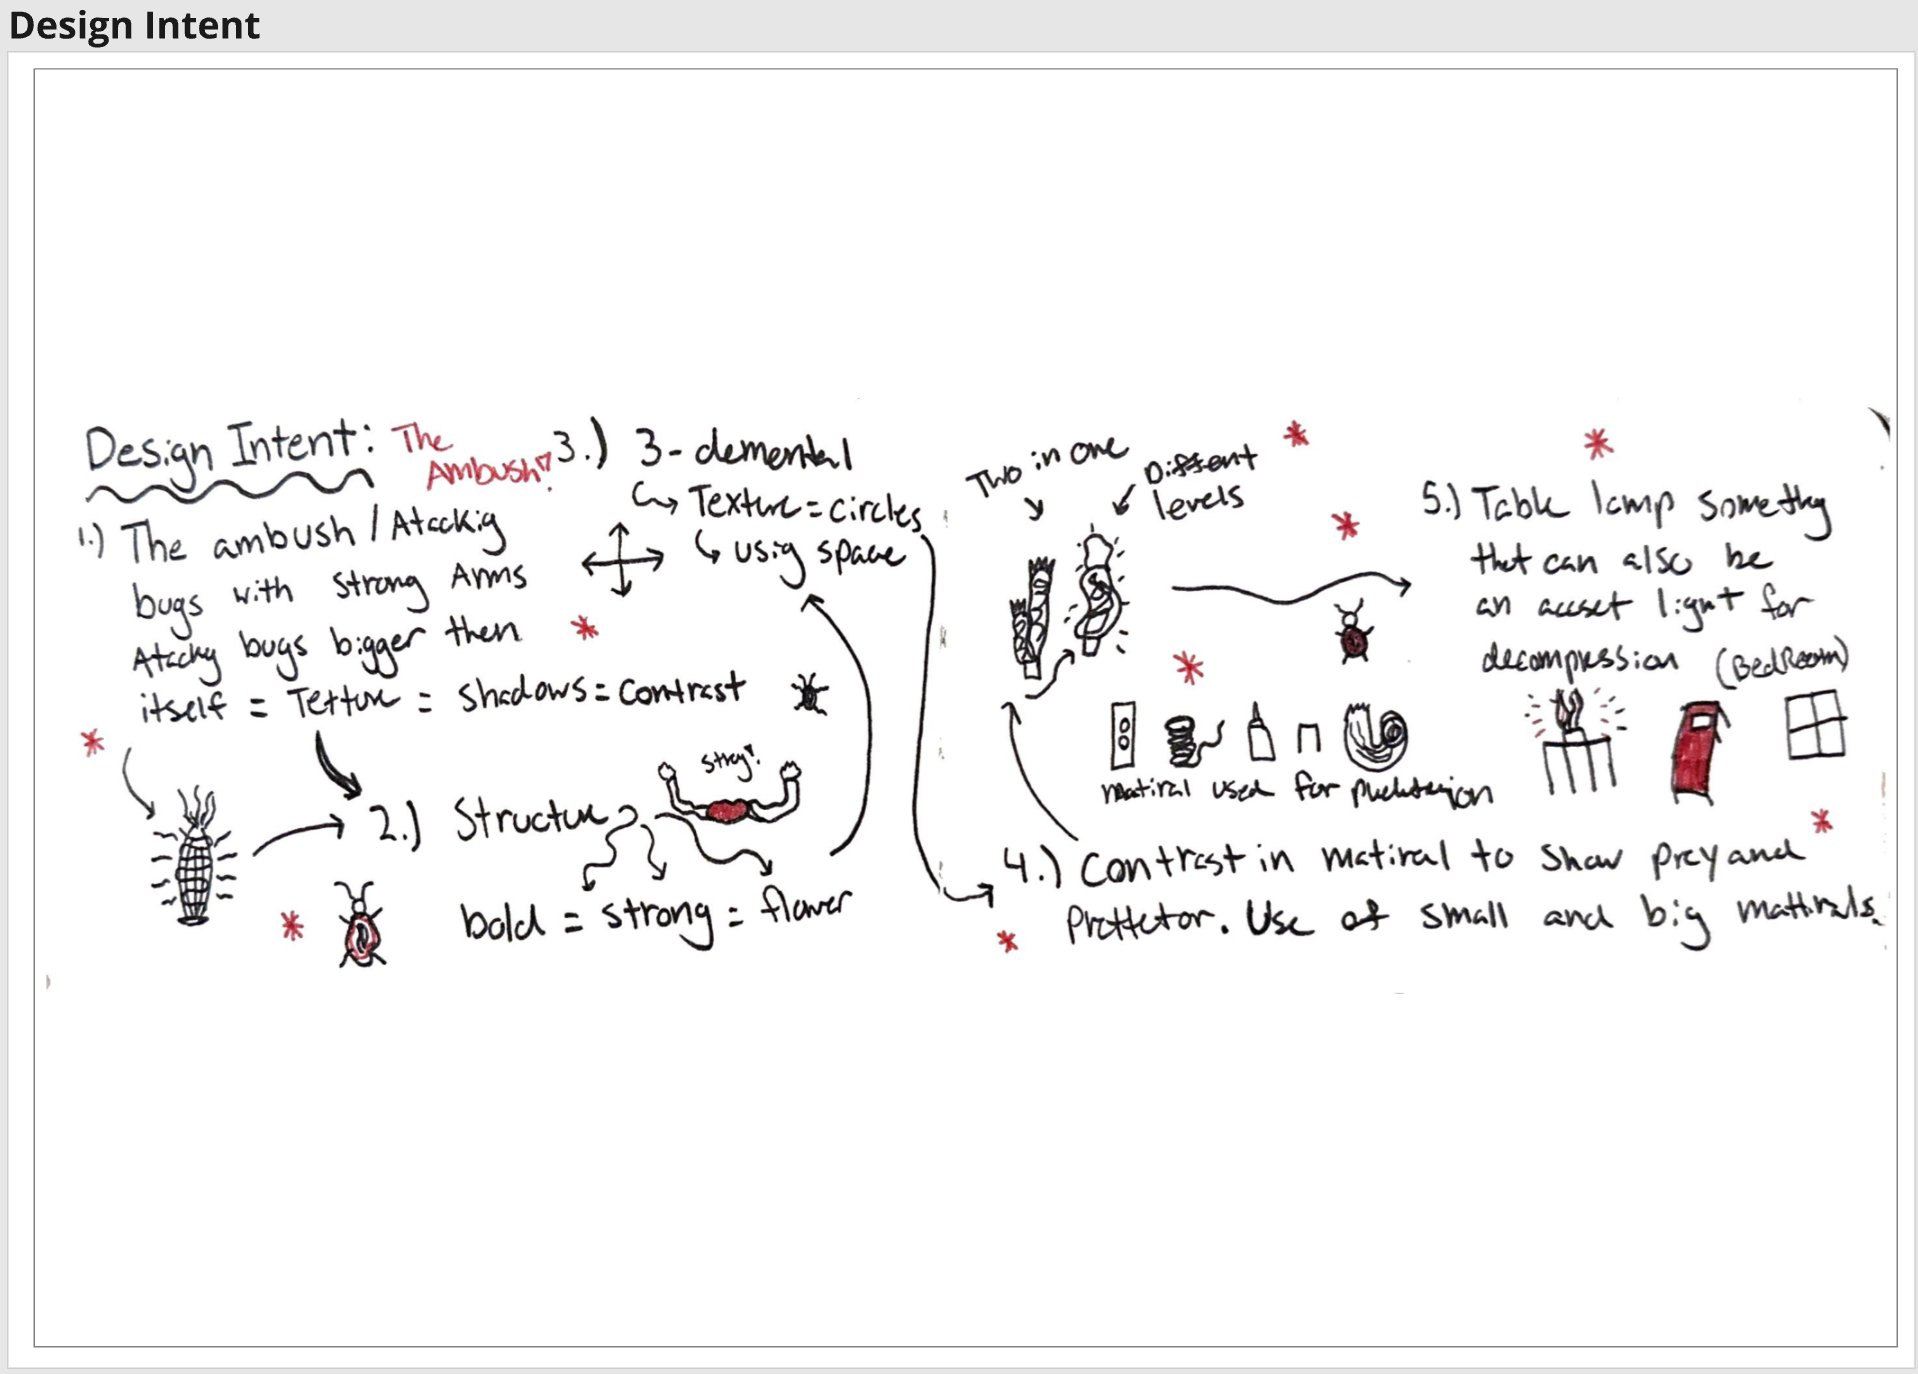 Design Intent
Design Intent: The Ambush!
1.) The ambush / Atackig
bugs with strong Arms
Atacky bugs bigger then
itself = Textur = shadows = contrast
2.) Structur
strog!
bold = strong = flower
3.) 3-demental
Texture = circles
usig space
Two in one
Diffent
levels
matiral used for
4.) Contrast in matiral to show prey and
Prottetor. Use of small and big mattirals.
5.) Table lamp somethg
that can also be
an accset light for
decompression (BedRoom)